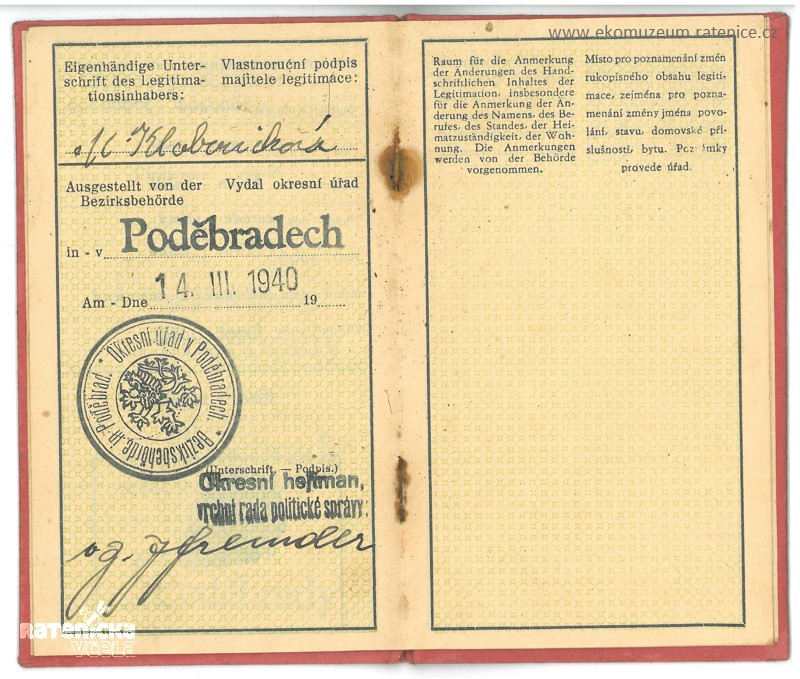 www.ekomuzeum.ratenice.cz
Eigenhändige Unter-
schrift des Legitima-
tionsinhabers:
Vlastnoruční podpis
majitele legitimace:
Ausgestellt von der
Bezirksbehörde
Vydal okresní úřad
in - v Poděbradech
Am - Dne 14. III. 1940 19
* Okresní úřad v Poděbradech. * Bezirksbehörde in Poděbrad.
(Unterschrift. — Podpis.)
Okresní hejtman,
vrchní rada politické správy:
Raum für die Anmerkung
der Änderungen des Hand-
schriftlichen Inhaltes der
Legitimation, insbesondere
für die Anmerkung der Än-
derung des Namens, des Be-
rufes, des Standes, der Hei-
matzuständigkeit, der Woh-
nung. Die Anmerkungen
werden von der Behörde
vorgenommen.
Místo pro poznamenání změn
rukopisného obsahu legiti-
mace, zejména pro pozna-
menání změny jména povo-
lání, stavu, domovské pří-
slušnosti, bytu. Poznámky
provede úřad.
Ratenická
včela